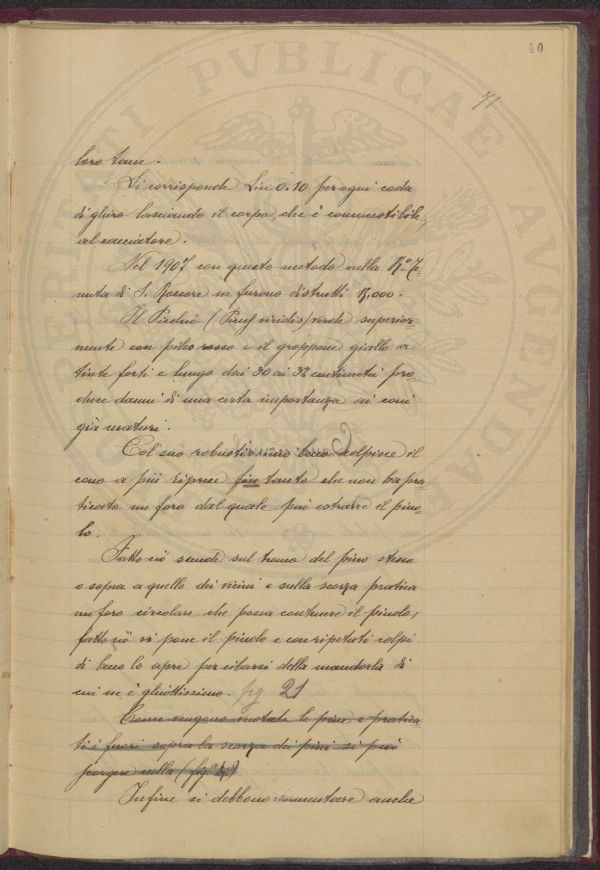 40
71
loro tane.
Si corrisponde Lire 0.10 per ogni coda
di ghiro lasciando il corpo, che è commestibile,
al cacciatore.
Nel 1907 con questo metodo nella Ra. Te-
nuta di S. Rossore ne furono distrutti
Il Picchio (Picus viridis) verde superior-
mente con pileo rosso e il groppone giallo a
tinte forti e lungo dai 30 ai 32 centimetri pro-
duce danni di una certa importanza ai coni
già maturi.
Col suo robustissimo becco colpisce il
cono a più riprese fin tanto che non ha pra-
ticato un foro dal quale può estrarre il pino-
lo.
Fatto ciò scende sul tronco del pino stesso
o sopra a quello dei vicini e sulla scorza pratica
un foro circolare che possa contenere il pinolo;
fatto ciò vi pone il pinolo e con ripetuti colpi
di becco lo apre per cibarsi della mandorla di
cui ne è ghiottissimo. fig 21
Come vengono vuotate le pine e pratica
ti i fuori sopra la scorza dei pini si può
scorgere nella (fig.
Infine si debbono rammentare anche
PVBLICAE